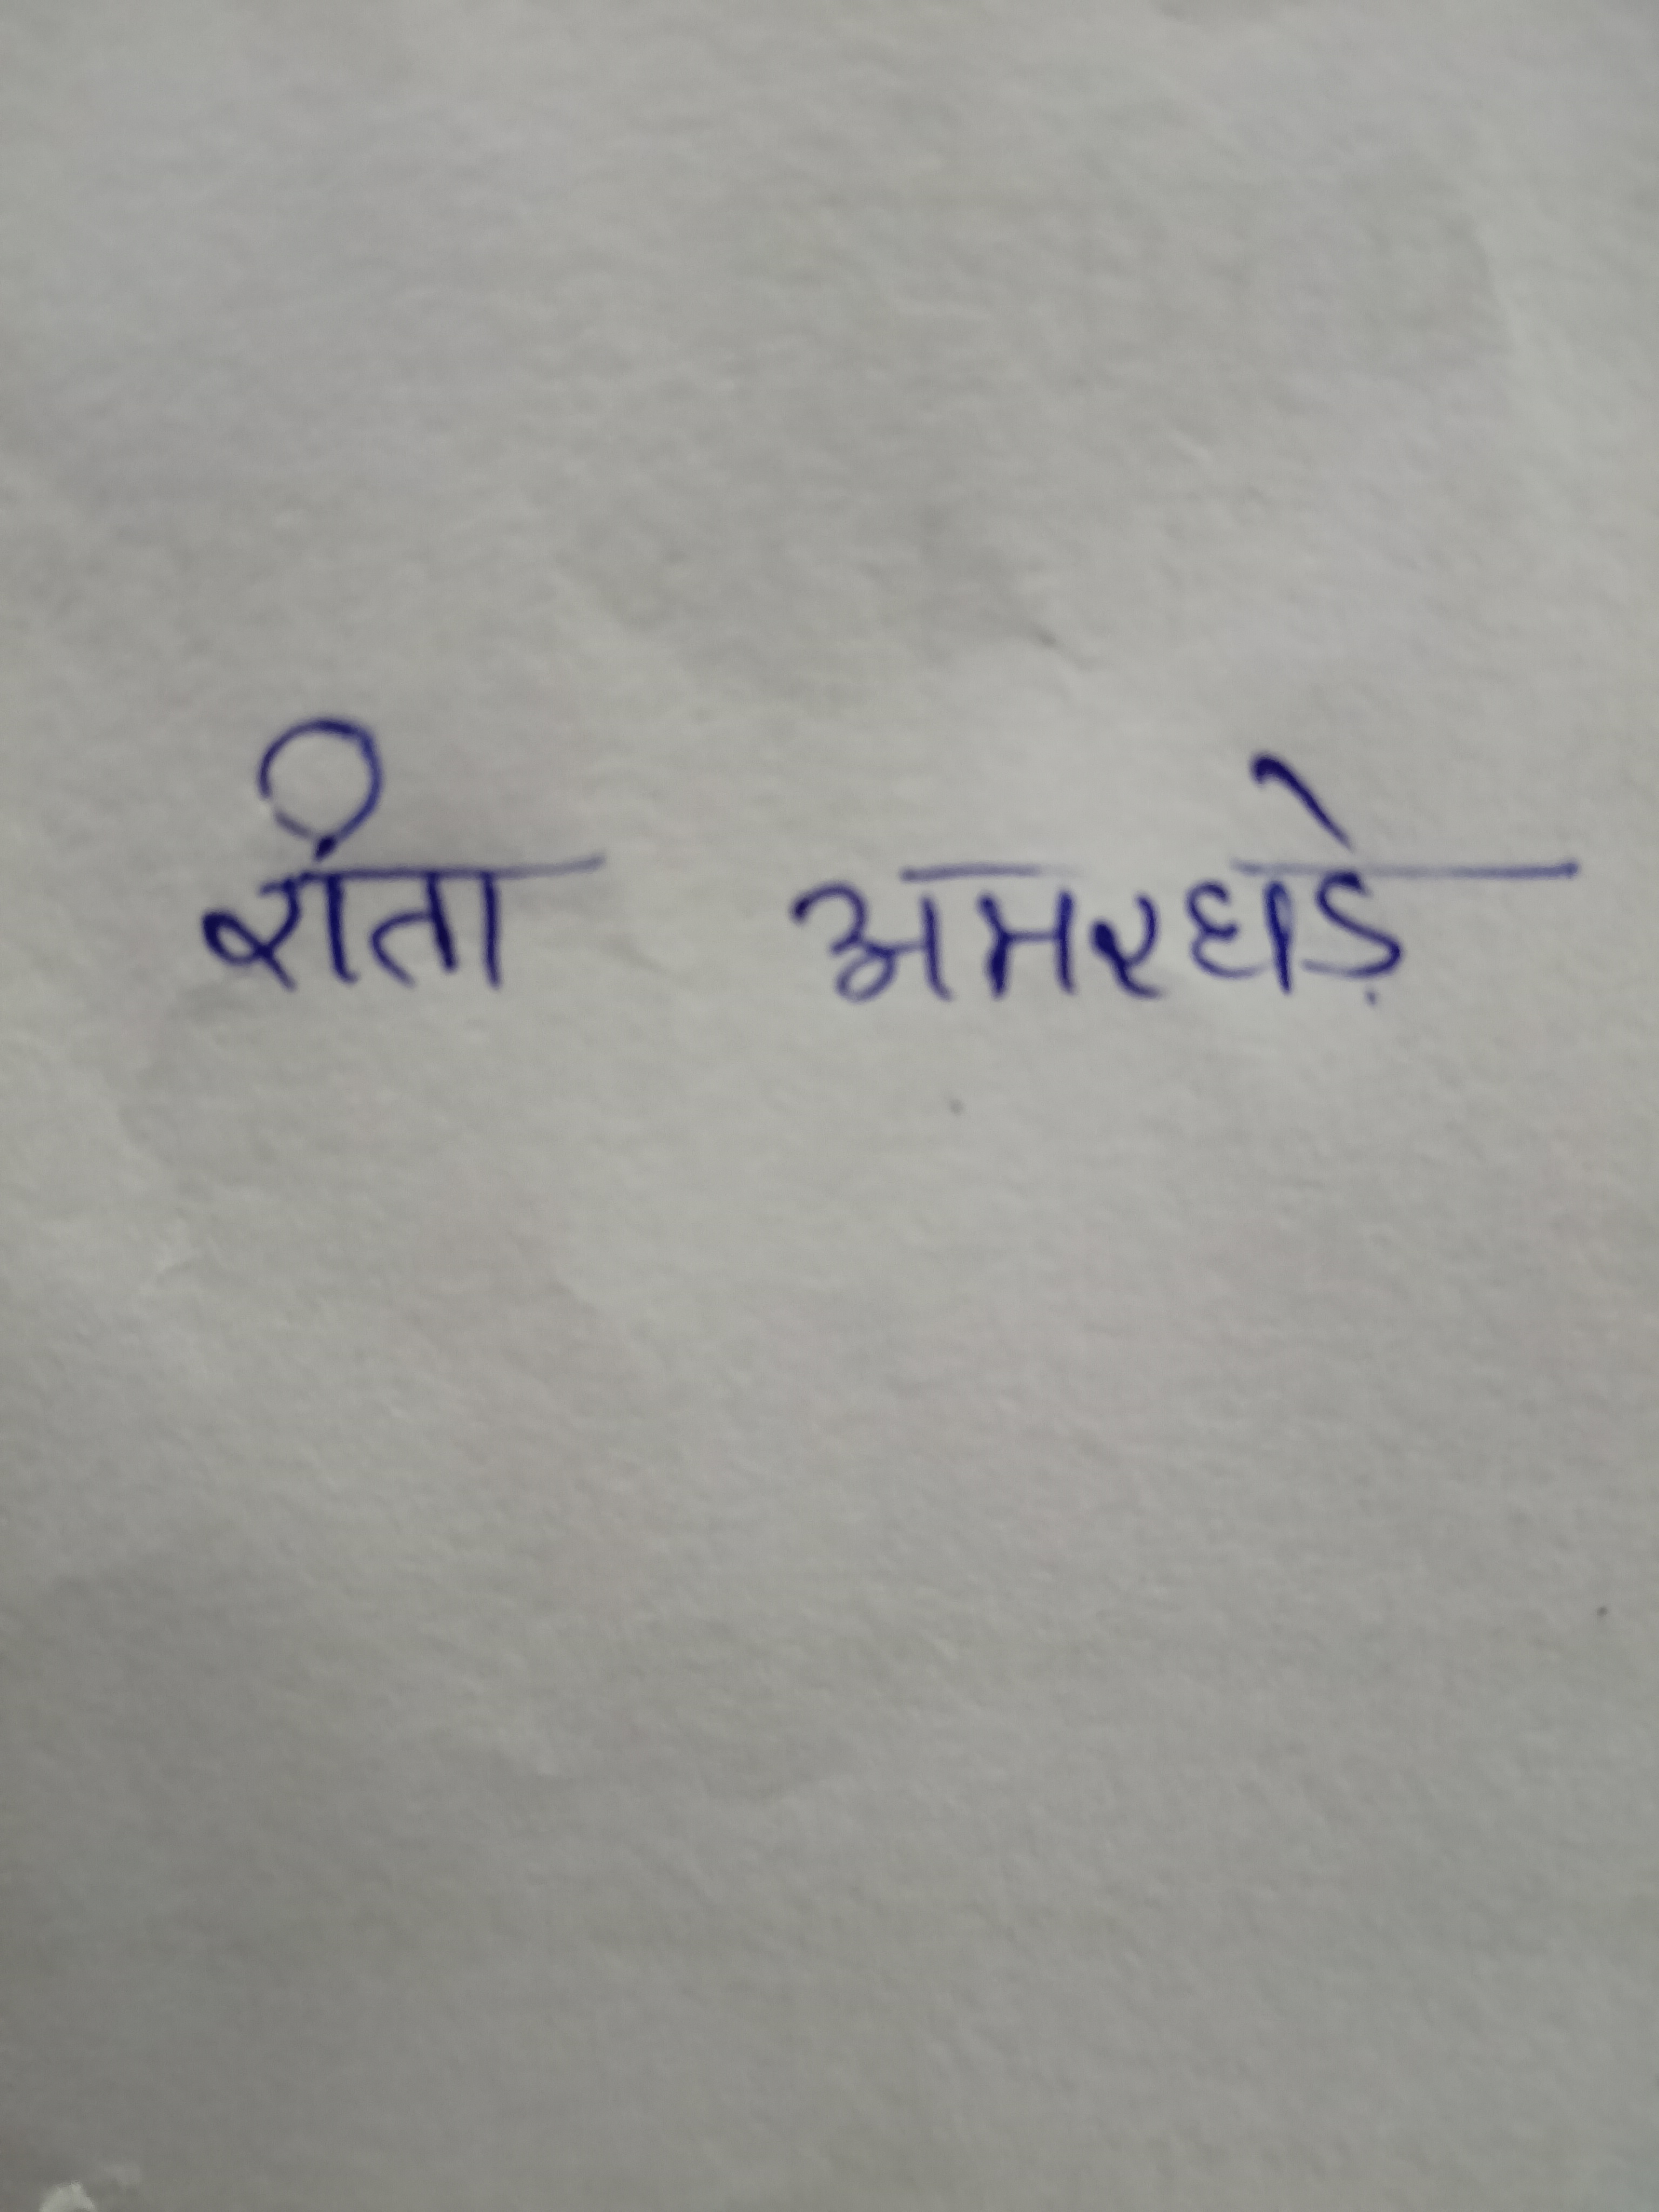 रीता अमरघड़े